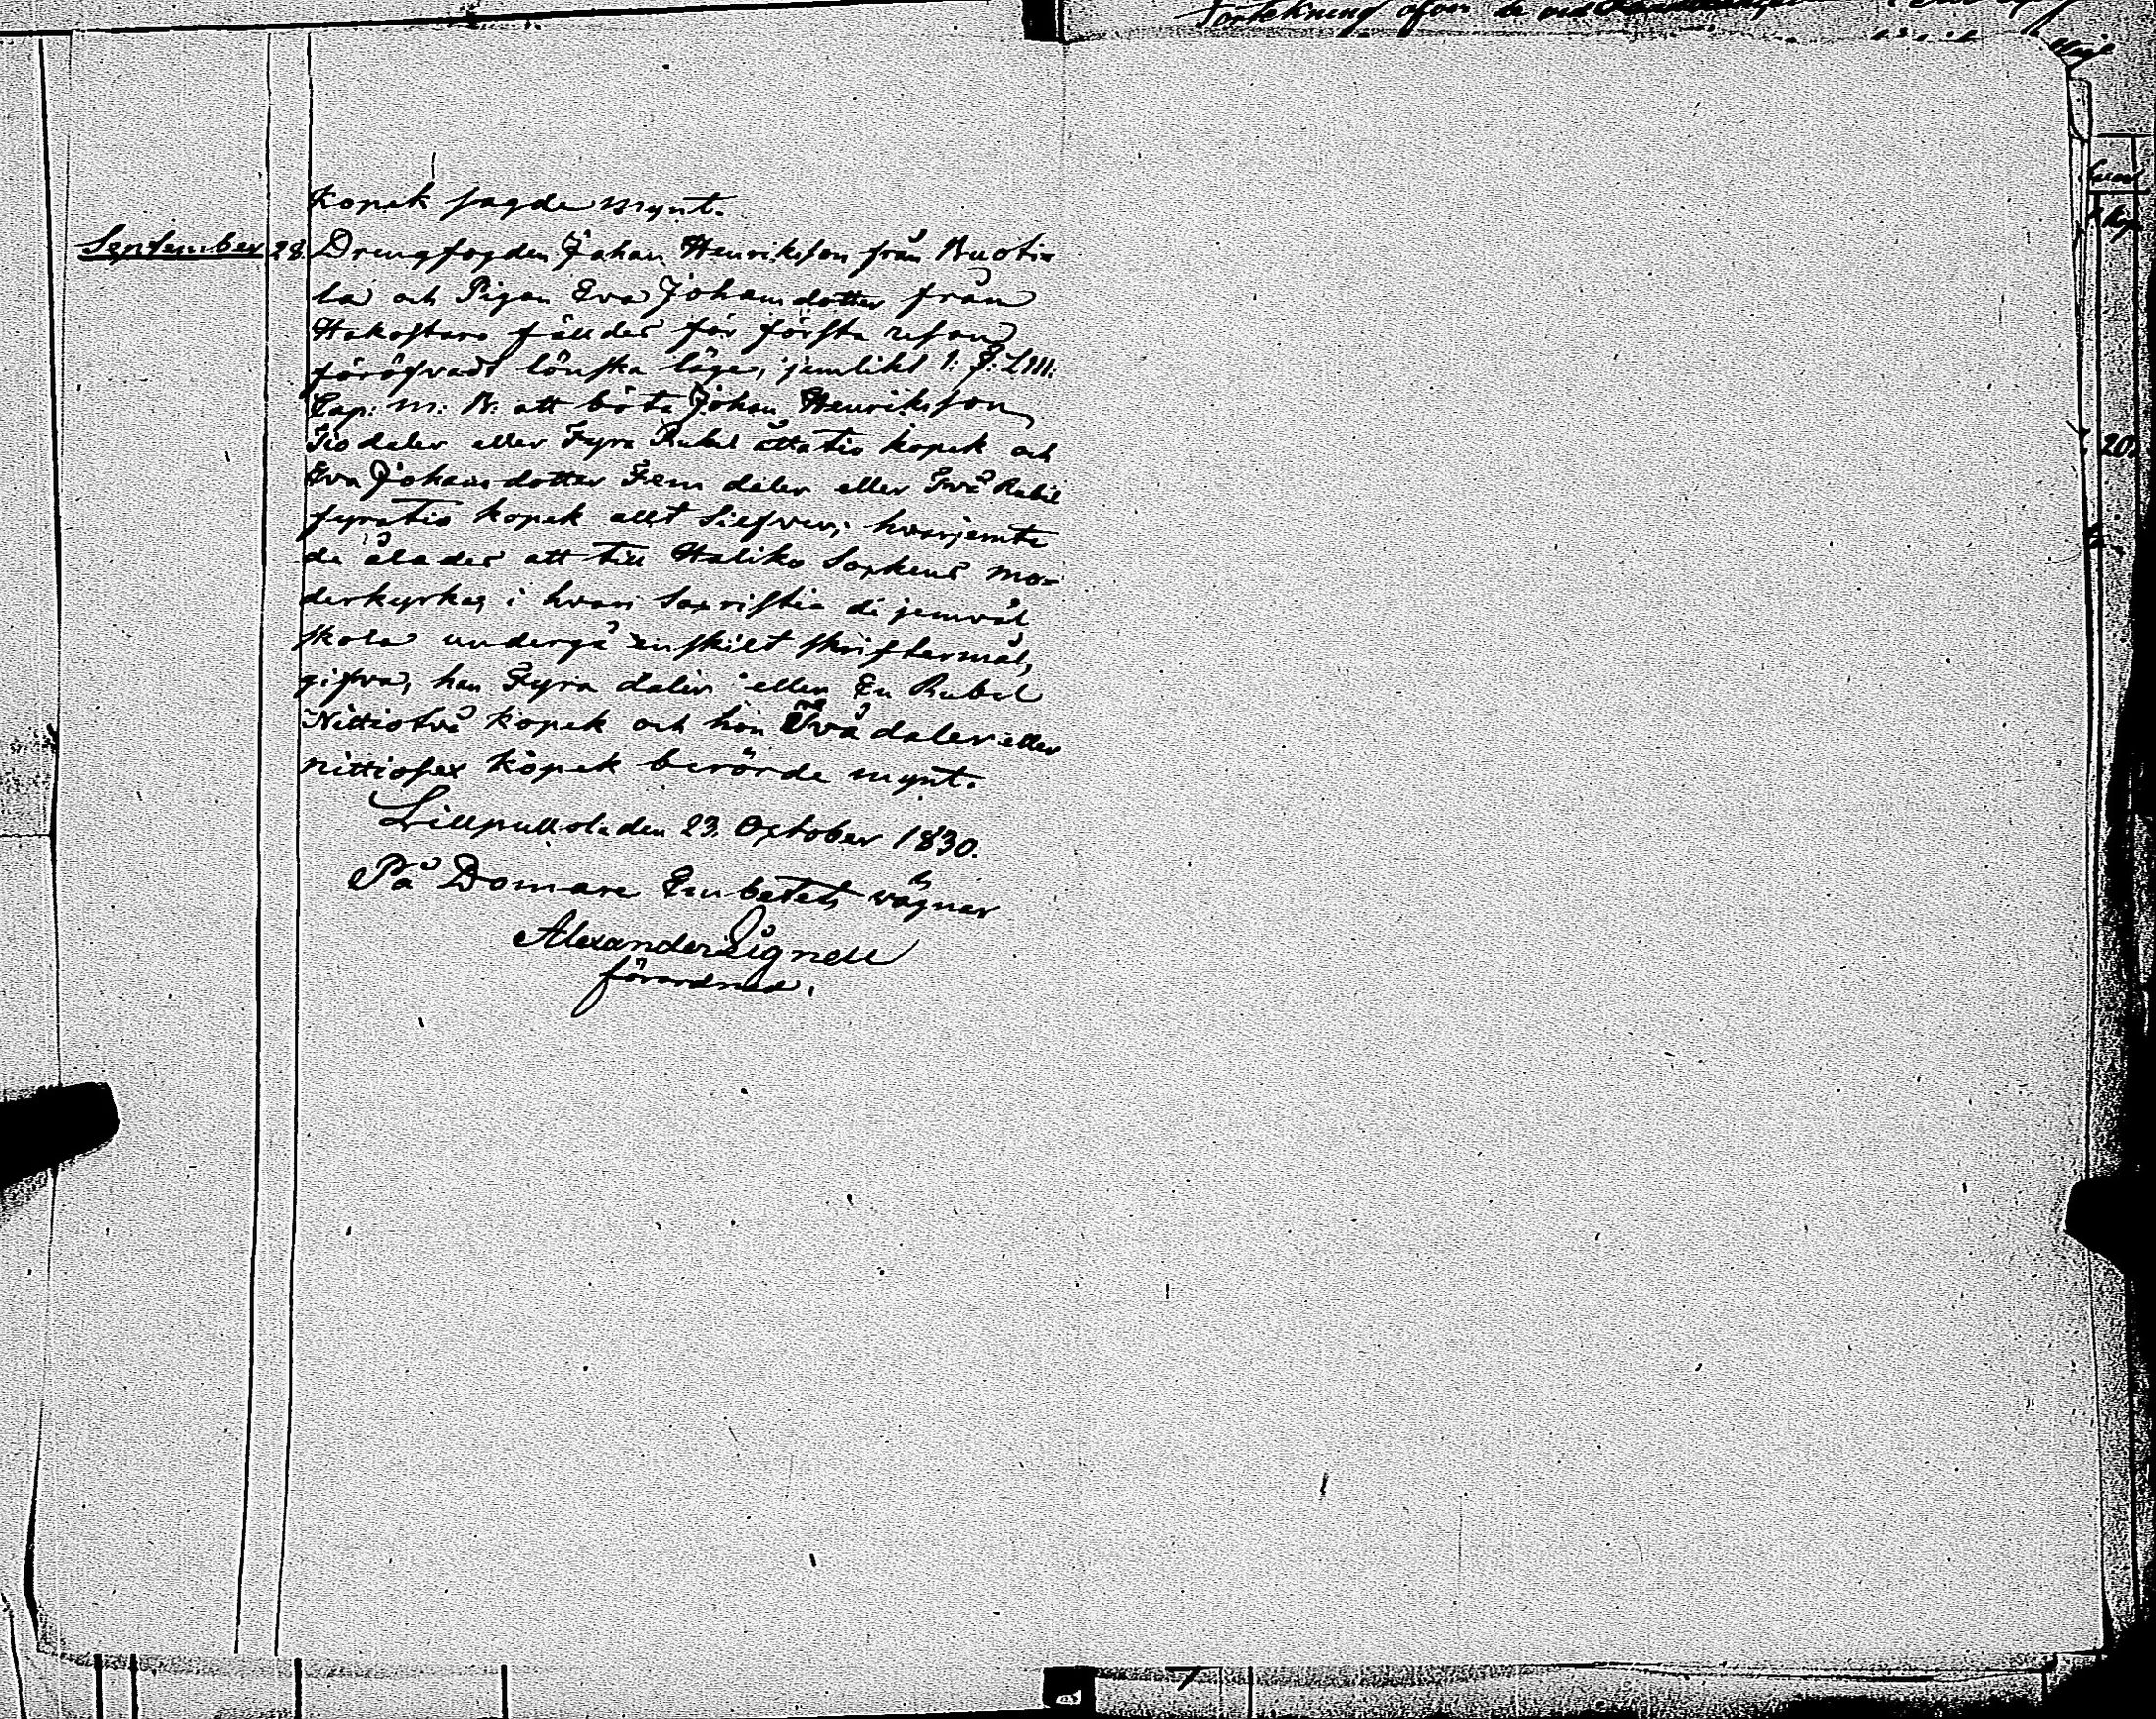 Förtekning öfver de vid
Kopek sagde mynt.
September 28. Drengfogden Johan Henriksson från Ruoti=
la och Pigan Eva Johansdotter från
Hakostaro fälldes för första resan
föröfvadt lönska läge, jemlikt 1. §. LIII.
Cap: M: B: att böta Johan Henriksson
Tio daler eller Fyra Rubel åttatio kopek och
Eva Johansdotter Fem daler eller Två Rubel
fyratio kopek allt Silfver; hvarjemte
de ålades att till Haliko Sockens mo=
derkyrka, i hvars Sacristia de jemväl
skola undergå enskilt skriftermål,
gifva, han Fyra daler eller En Rubel
Nittiotvå kopek och hon Två daler eller
nittiosex kopek berörde mynt.
Lillpullola den 23. October 1830.
På Domare Embetets vägnar
Alexander Lignell
förordnad.
20.